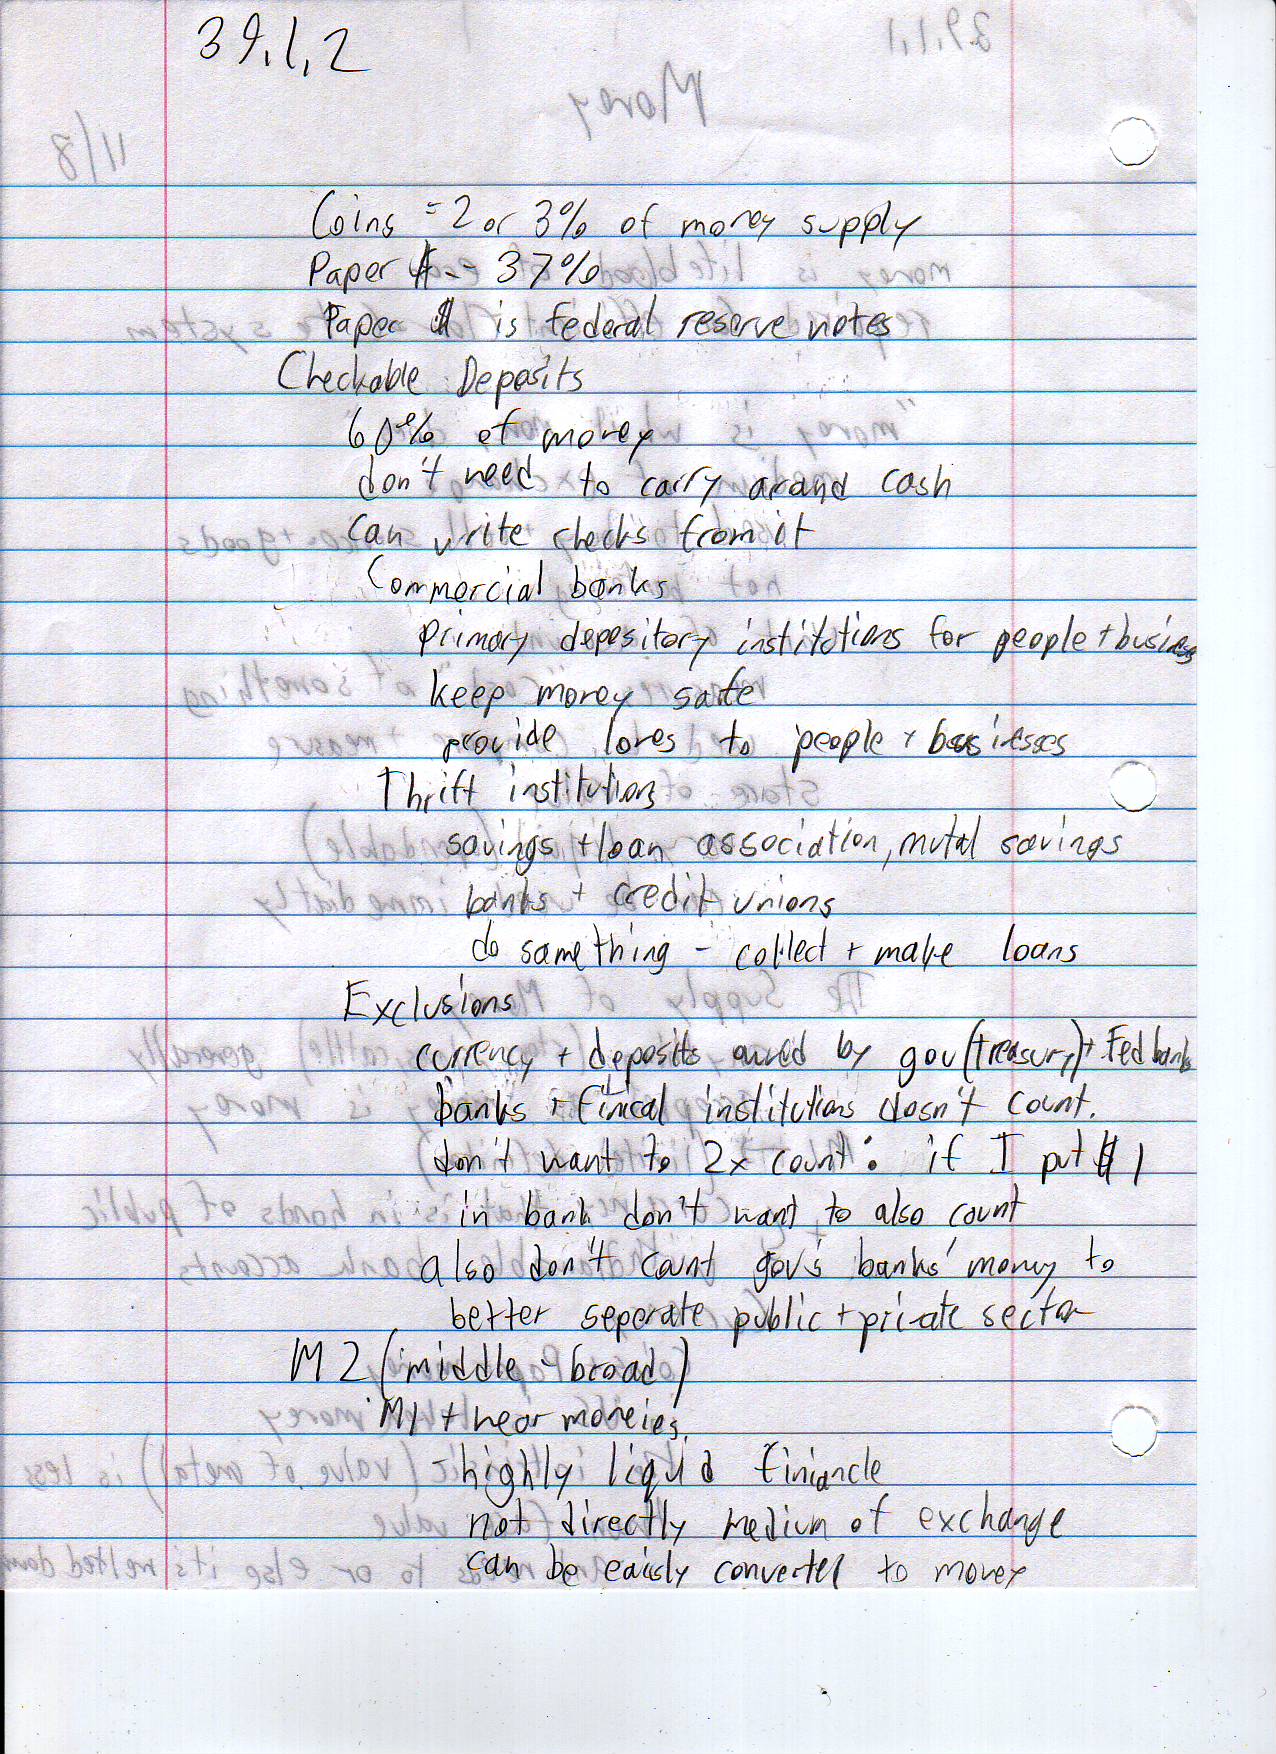 39.1.2
Coins = 2 or 3% of money supply
Paper $ -- 37%
Paper $ is federal reserve notes
Checkable Deposits
60% of money
don't need to carry around cash
can write checks from it
Commercial banks
primary depository institutions for people + business
keep money safe
provide lones to people + busineses
Thrift institutions
savings + loan association, mutal savings
banks + credit unions
do same thing - collect + make loans
Exclusions
currency + deposits owned by gov (treasury) + Fed banks
banks + finical institutions dosn't count.
don't want to 2x count: if I put $1
in bank don't want to also count
also don't count gov's banks' money to
better seperate public + private sector
M2 (middle - broad)
M1 + near moneies.
- highly liquid finiancle
not directly medium of exchange
can be eaisly converted to money